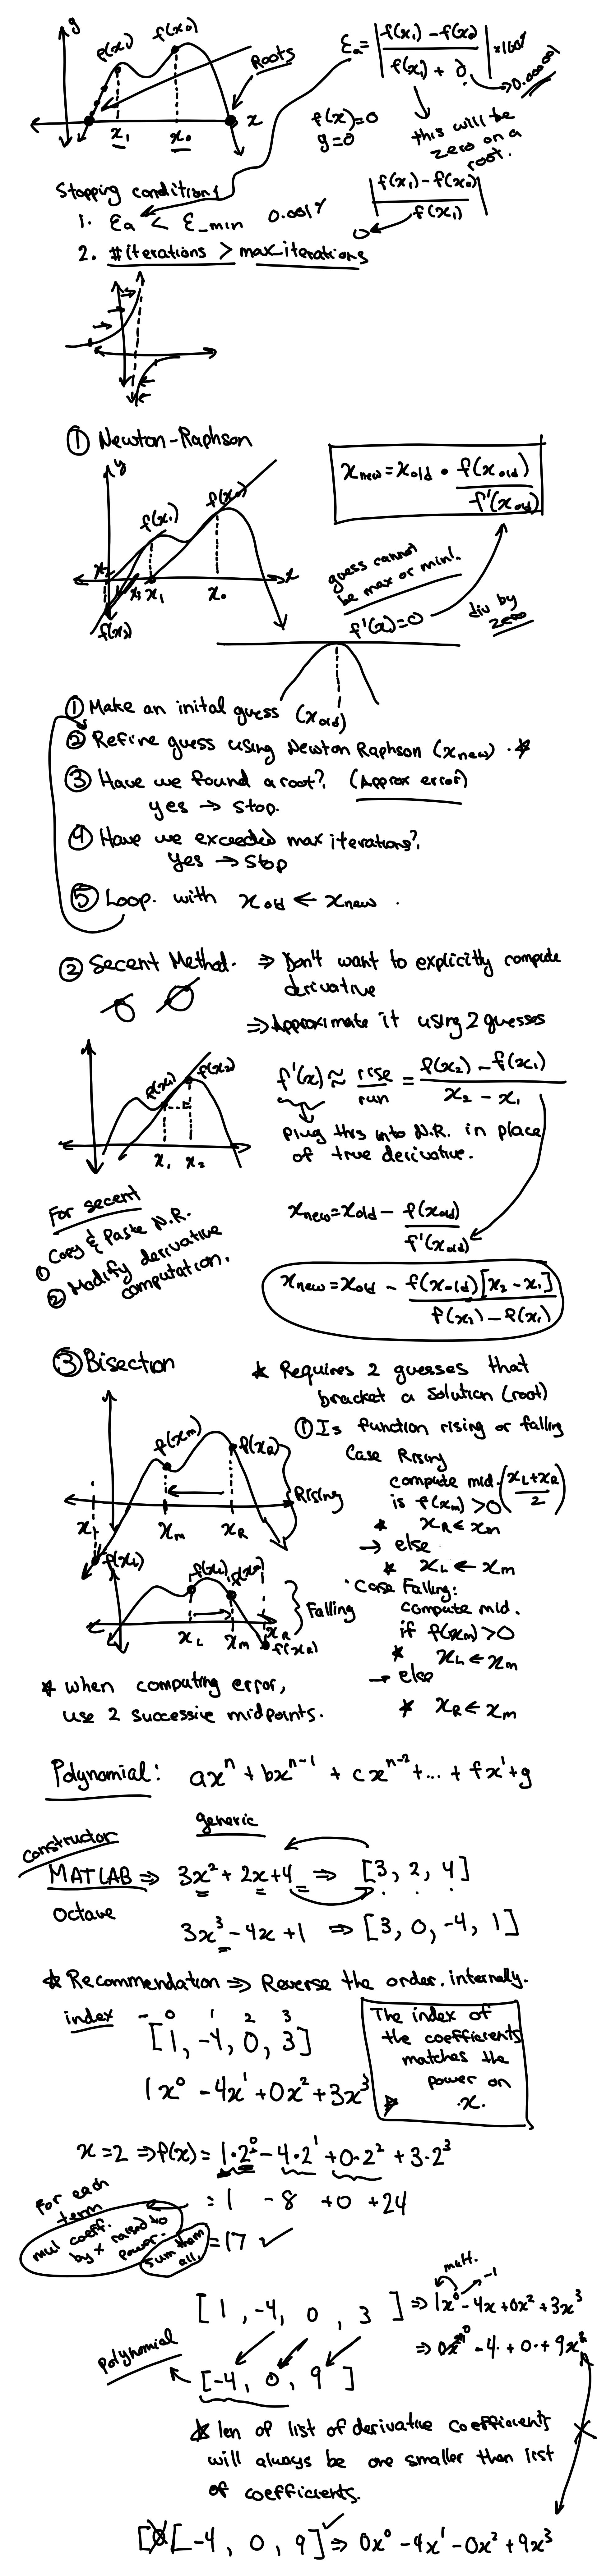 y
f(x₁)
f(x₀)
Roots
x₁
x₀
x
f(x)=0
y=0
Ɛa = |f(x₁) - f(x₀) / f(x₁) + ∂| *100%
0.000001
this will be
zero on a
root.
|f(x₁) - f(x₀) / f(x₁)|
0
Stopping conditions
1. Ɛa < Ɛ_min 0.001%
2. #iterations > max_iterations
① Newton-Raphson
y
f(x₁)
f(x₀)
x₂
x₃
x₁
x₀
x
f(x₂)
x new = x old - f(x old) / f'(x old)
guess cannot
be max or min!.
f'(x)=0
div by
zero
① Make an inital guess (x old)
② Refine guess using Newton Raphson (x new) . *
③ Have we found a root? (Approx error)
yes → stop.
④ Have we exceeded max iterations?
Yes → Stop
⑤ Loop. with x old ← x new .
② Secent Method. ⇒ Don't want to explicitly compute
derivative
⇒ Approximate it using 2 guesses
f(x₁)
f(x₂)
x₁ x₂
f'(x) ≈ rise / run = f(x₂) - f(x₁) / x₂ - x₁
plug this into N.R. in place
of true derivative.
For secent
① Copy & Paste N.R.
② Modify derivative
computation.
x new = x old - f(x old) / f'(x old)
x new = x old - f(x old)[x₂ - x₁] / f(x₂) - f(x₁)
③ Bisection
* Requires 2 guesses that
bracket a solution (root)
f(xm)
f(xR)
Rising
xL
xm
xR
f(xL)
① Is function rising or falling
Case Rising
compute mid. (xL+xR / 2)
is f(xm) >0
* xR ← xm
→ else
* xL ← xm
f(xL)
f(xm)
Falling
xL
xm
xR
f(xR)
Case Falling:
compute mid.
if f(xm) >0
* xL ← xm
→ else
* xR ← xm
* when computing error,
use 2 successive midpoints.
Polynomial: axⁿ + bxⁿ⁻¹ + cxⁿ⁻² + ... + fx¹ + g
generic
constructor
MATLAB ⇒ 3x² + 2x + 4 ⇒ [3, 2, 4]
Octave
3x³ - 4x + 1 ⇒ [3, 0, -4, 1]
* Recommendation ⇒ Reverse the order. internally.
index - 0 1 2 3
[1, -4, 0, 3]
1x⁰ - 4x¹ + 0x² + 3x³
The index of
the coefficients
matches the
power on
x.
x=2 ⇒ f(x) = 1·2⁰ - 4·2¹ + 0·2² + 3·2³
= 1 - 8 + 0 + 24
= 17 ✓
For each
term
mul coeff.
by x raised to
power.
Sum them
all.
[1, -4, 0, 3] ⇒ 1x⁰ - 4x + 0x² + 3x³
mult.
-1
⇒ 0x⁰ - 4 + 0 + 9x²
polynomial
[-4, 0, 9]
* len of list of derivative coefficients
will always be one smaller than list
of coefficients.
[-4, 0, 9] ✓ ⇒ 0x⁰ - 4x¹ - 0x² + 9x³